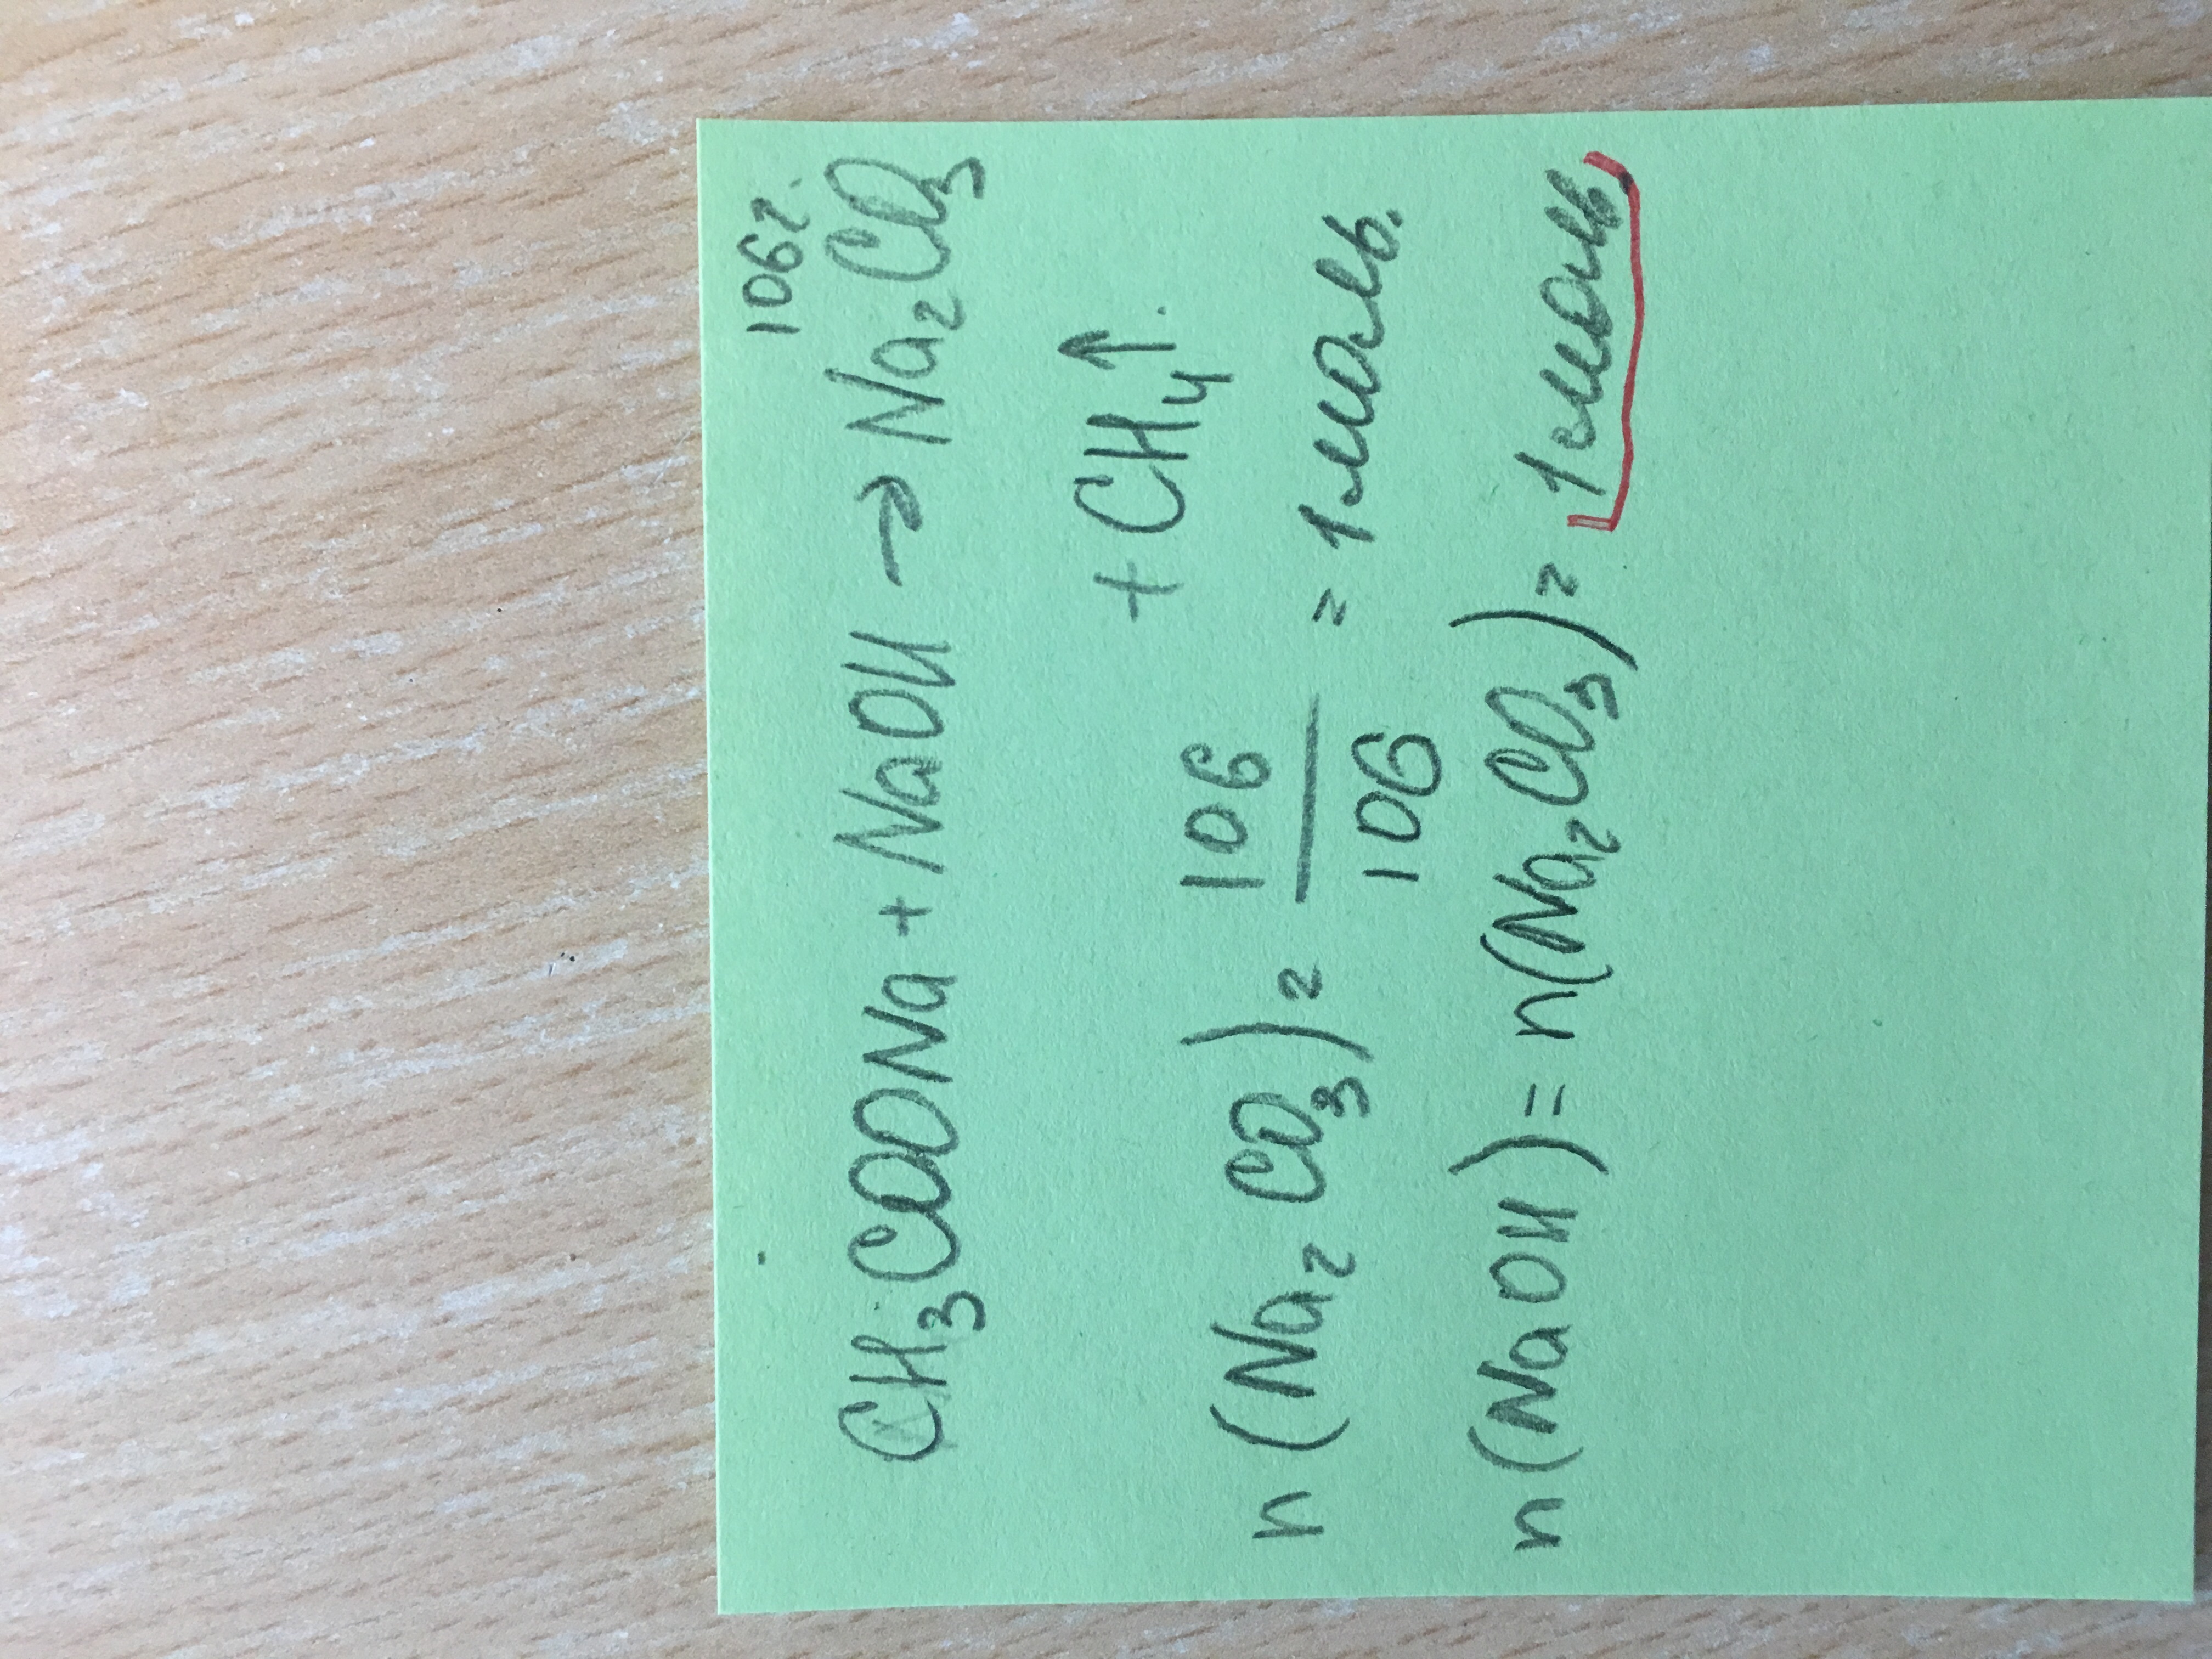 106г.
CH₃COONa + NaOH → Na₂CO₃
+ CH₄↑.
n (Na₂CO₃) = 106 / 106 = 1 моль.
n (NaOH) = n(Na₂CO₃) = 1 моль